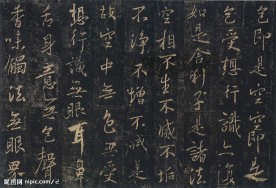 色即是空空即是
色受想行識亦復
如是舍利子是諸法
空相不生不滅不垢
不淨不增不減是
故空中無色無受
想行識無眼耳鼻
舌身意無色聲
香味觸法無眼界
昵图网 nipic.com/